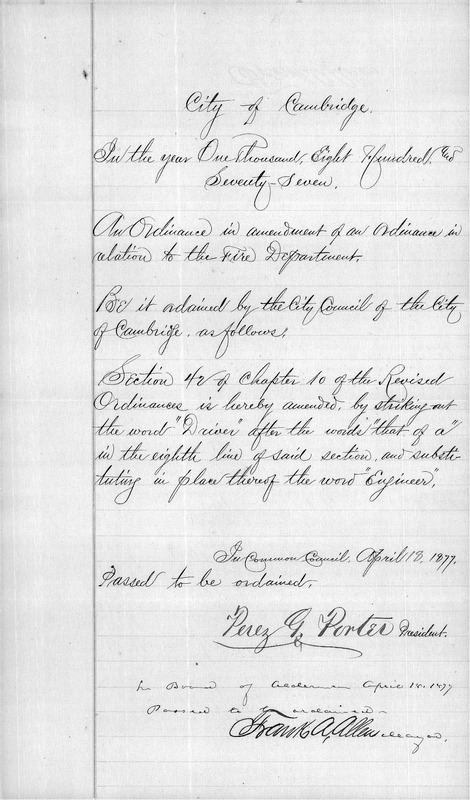 City of Cambridge.
In the year One Thousand, Eight Hundred, and
Seventy-Seven.
An Ordinance in amendment of an ordinance in
relation to the Fire Department.
Be it ordained by the City Council of the City
of Cambridge, as follows;
Section 42 of Chapter 10 of the Revised
Ordinances is hereby amended, by striking out
the word "Driver" after the words "that of a"
in the eighth line of said section, and substi-
tuting in place thereof the word "Engineer".
In Common Council, April 18, 1877.
Passed to be ordained.
Perez G. Porter President.
In Board of Aldermen April 18. 1877
Passed to be ordained.
Frank A. Allen Mayor.